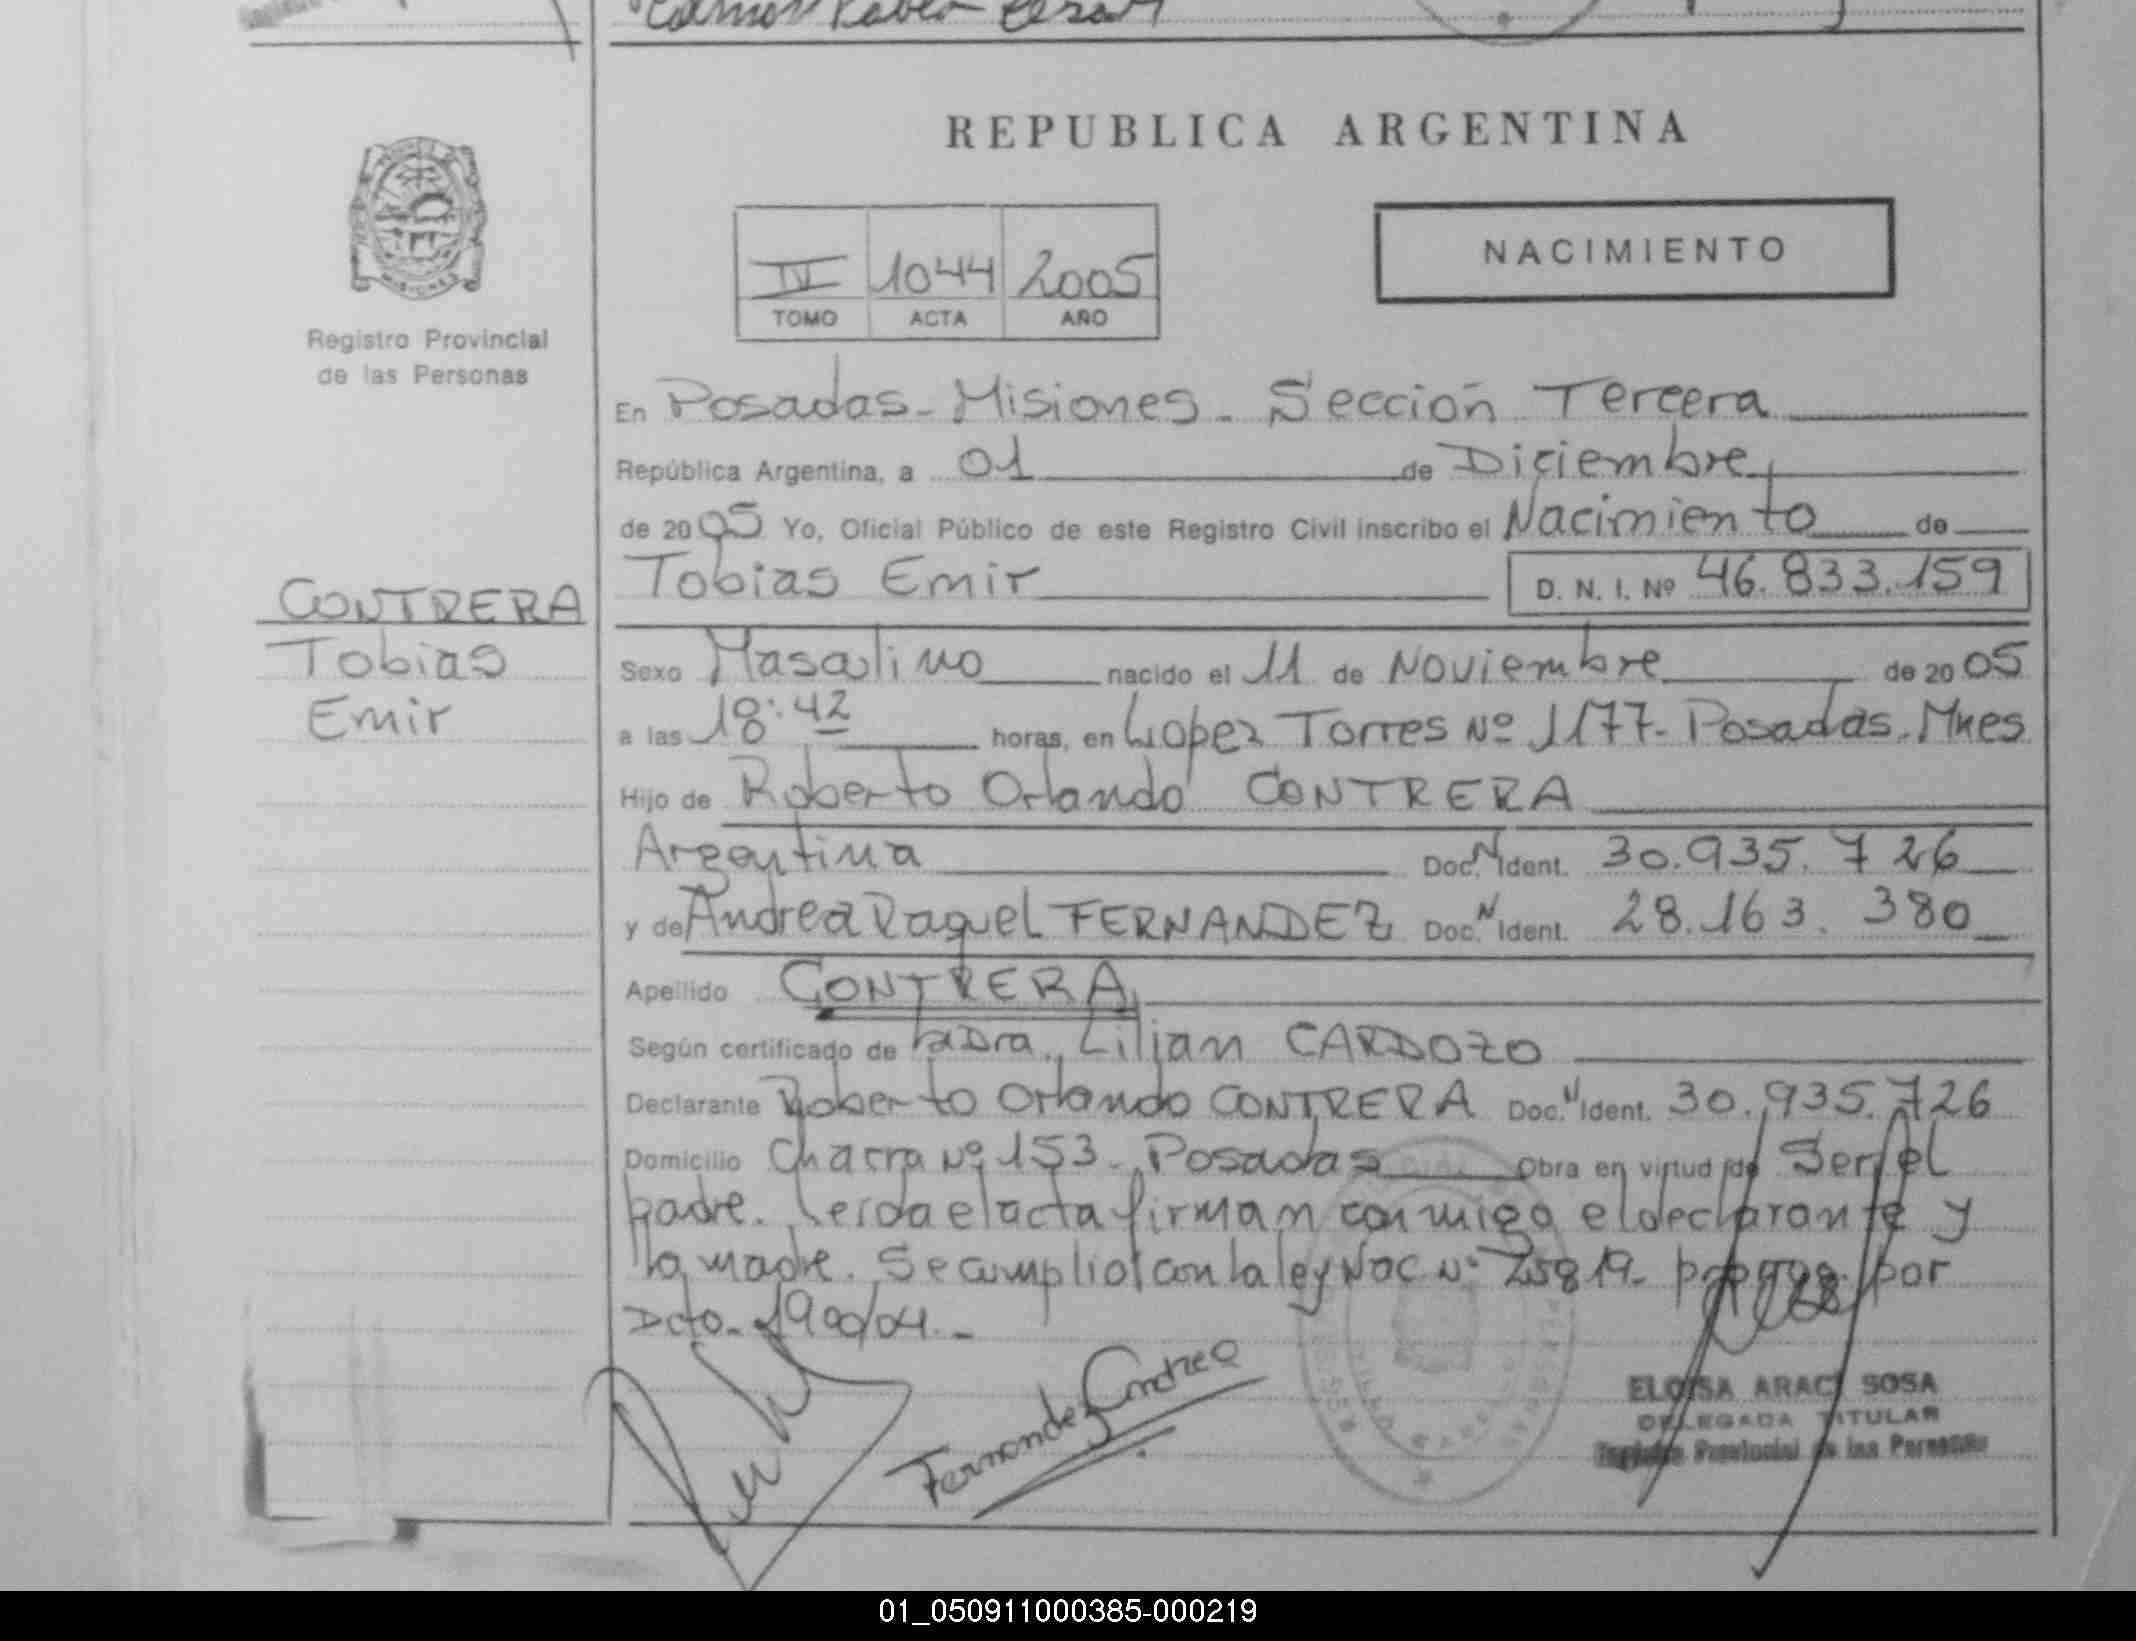 REPUBLICA ARGENTINA
NACIMIENTO
IV 1044 2005
TOMO ACTA AÑO
Registro Provincial
de las Personas
En Posadas - Misiones - Sección Tercera
República Argentina, a 01 de Diciembre
de 2005 Yo, Oficial Público de este Registro Civil inscribo el Nacimiento de
Tobias Emir D. N. I. Nº 46.833.159
CONTRERA
Tobias
Emir
Sexo Masculino nacido el 11 de Noviembre de 2005
a las 18:42 horas, en Lopez Torres Nº 1177- Posadas - Mnes
Hijo de Roberto Orlando CONTRERA
Argentina Doc. N Ident. 30.935.726
y de Andrea Raquel FERNANDEZ Doc. N Ident. 28.163.380
Apellido CONTRERA
Según certificado de la Dra. Lilian CARDOZO
Declarante Roberto Orlando CONTRERA Doc. N Ident. 30.935.726
Domicilio Chacra Nº 153 - Posadas Obra en virtud de Ser el
padre. Leida el acta firman conmigo el declarante y
la madre. Se cumplió con la ley Nac. Nº 25819- por
Dcto. 1900/04.-
Fernandez Andrea
ELOISA ARACI SOSA
DELEGADA TITULAR
Registro Provincial de las Personas
01_050911000385-000219